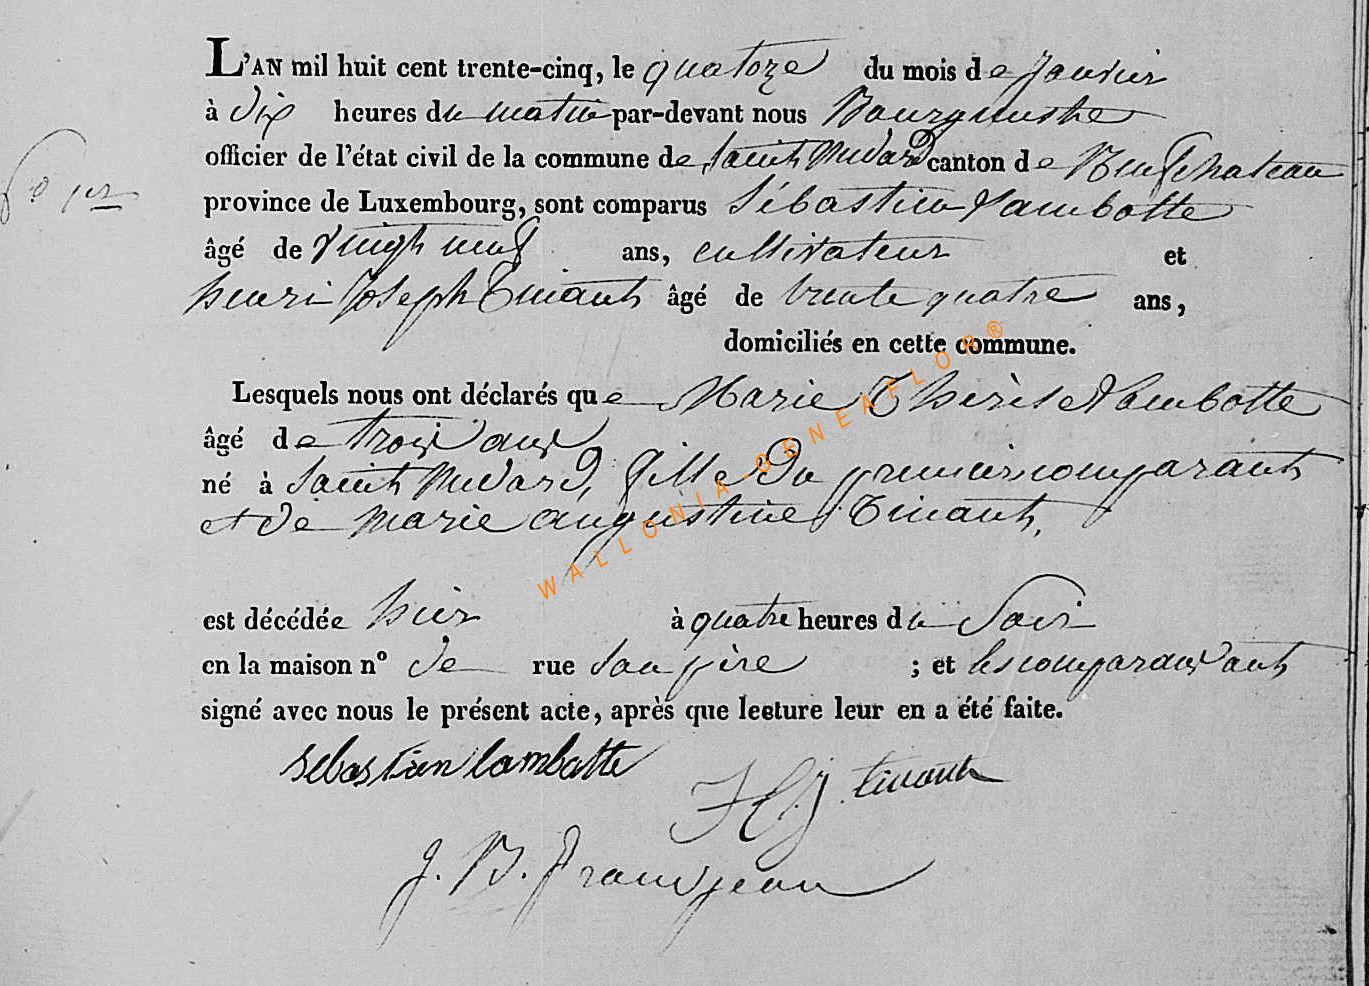 L'AN mil huit cent trente-cinq, le quatorze du mois de janvier
à dix heures du matin par-devant nous Bourguestre
officier de l'état civil de la commune de Saint Medard canton de Neufchateau
province de Luxembourg, sont comparus Sébastien Lambotte
âgé de vingt neuf ans, cultivateur et
henri Joseph Tinant âgé de trente quatre ans,
domiciliés en cette commune.
Lesquels nous ont déclarés que Marie Thérèse Lambotte
âgé de trois ans
né à Saint Medard, fille du premier comparant
et de marie augustine Tinant,
est décédée hier à quatre heures du Soir
en la maison n° de rue son père ; et les comparans ont
signé avec nous le présent acte, après que lecture leur en a été faite.
sebastien lambotte
H J tinant
J. B. Grandjean
WALLONIA-GENEAFLOR®